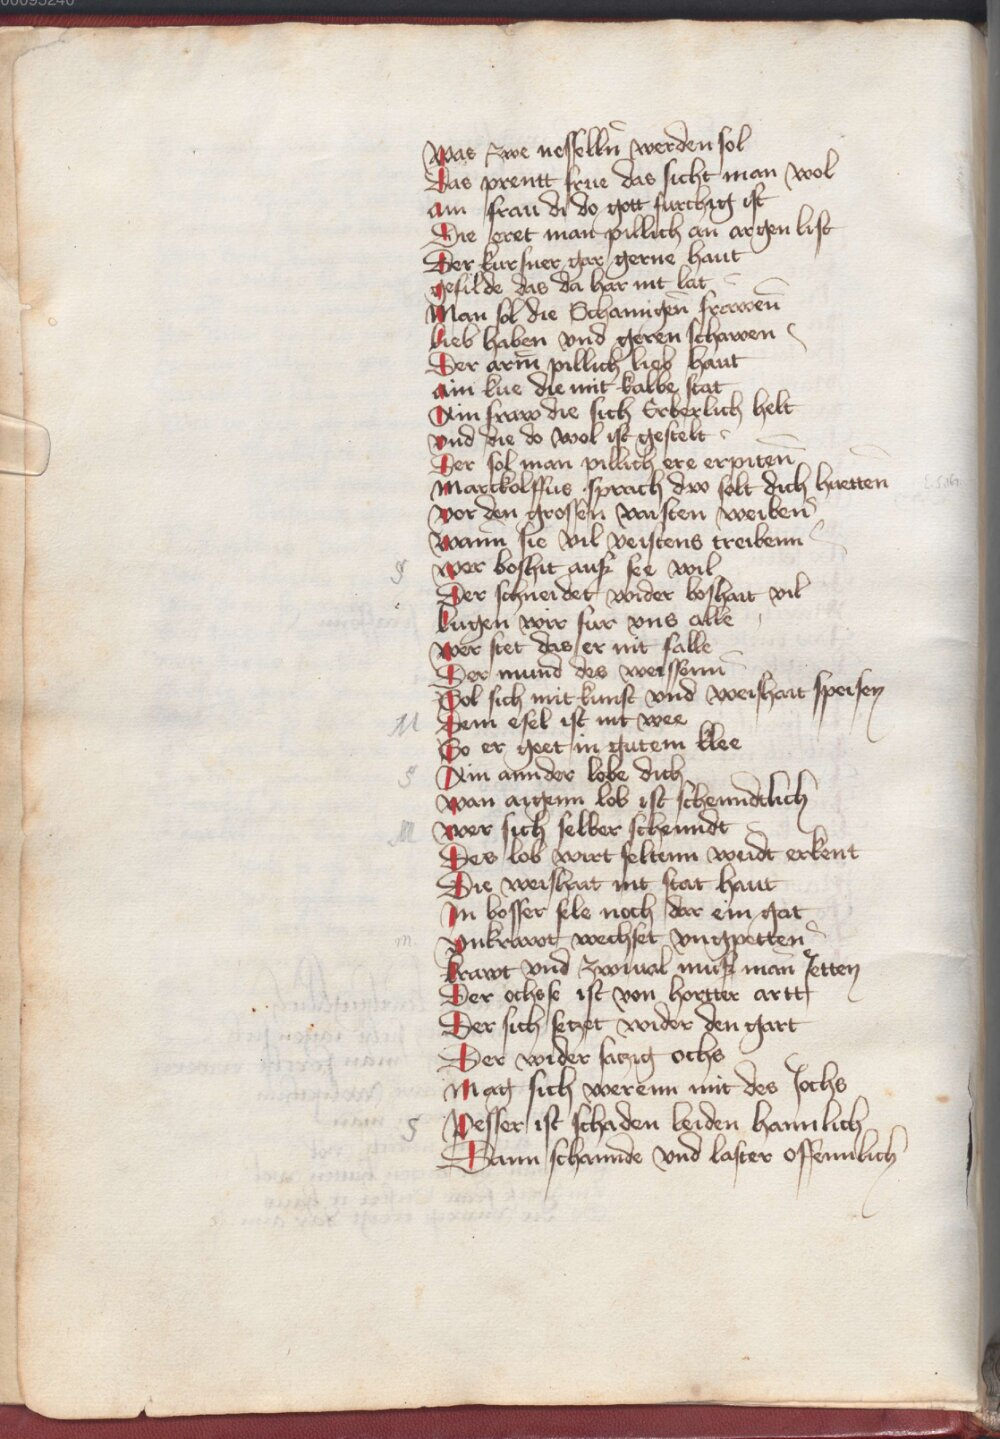 Was zwe nesselln̄ werden sol
Das prentt frue das sicht man wol
ain frau di do gott furchtig ist
Die eret man pillich an argen list
Der kursner gar gerne haut
gefilde das da har nit lat
Man sol die Schamigen frawen̄
lieb haben vnd geren schawen
Der arm̄ pillich lieb haut
ain kue die mit kalbe stat
Ain fraw die sich Erberlich helt
vnd die do wol ist gestelt
Der sol man pillich ere erpiten̄
Marckolffus sprach dw solt dich huetten
vor den grossen vaisten weiben̄
Wann sie vil veistens treibenn
wer boshit auß see wil
Der schneidet wider boshait vil
lugen wir fur vns alle
wer stet das er nit falle
Der mund des weissenn
Sol sich mit kunst vnd weishait speisen
Dem esel ist nit wee
So er geet in gutem klee
Ain annder lobe dich
wan aigenn lob ist schenndtlich
wer sich selber schenndt
Des lob wirt seltenn weidt erkent
Die weishait nit stat haut
In bosser sele noch dar ein gat
vnkrawt wechset vngpetten
krawt vnd zwiual muß man Jetten
Der ochsse ist von hortter artt
Der sich setzet wider den gart
Der wider satzig ochs
Mag sich werenn mit des Jochs
Pesser ist schaden leiden haimlich
Dann schannde vnd laster offennlich